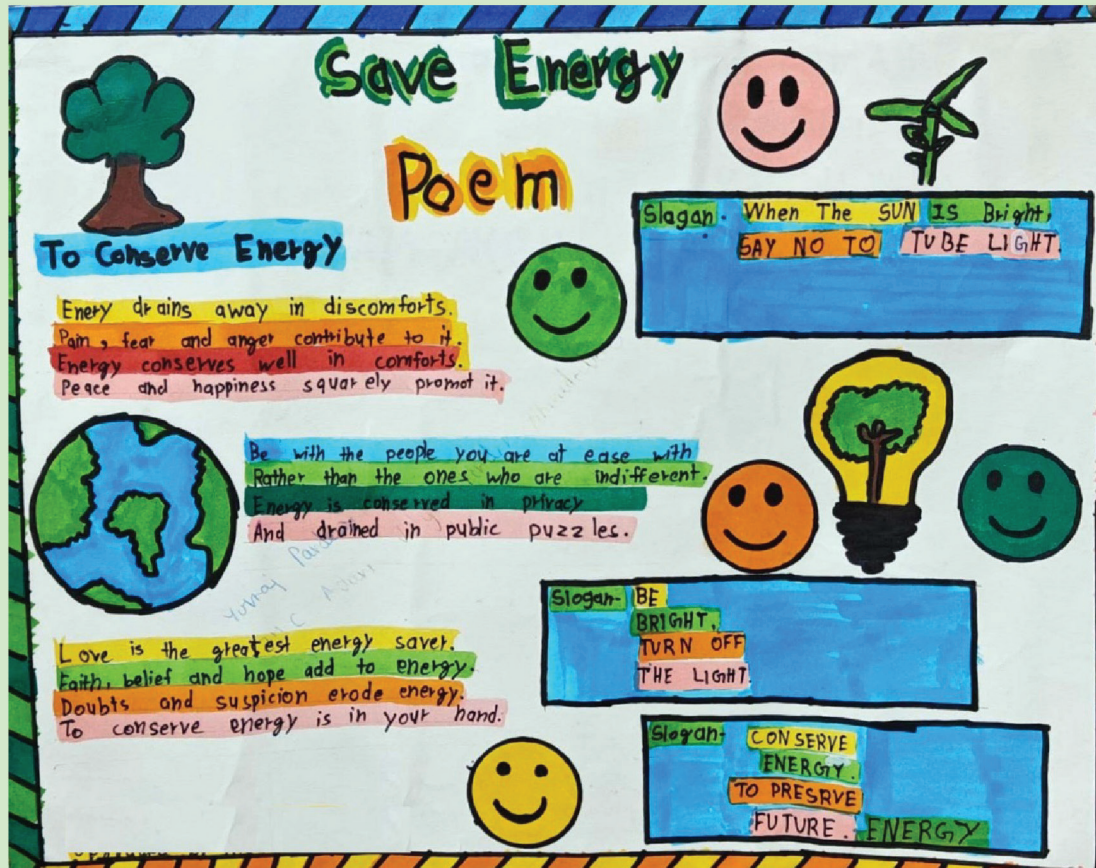 Save Energy
Poem
To Conserve Energy
Enery drains away in discomforts.
Pain, fear and anger contribute to it.
Energy conserves well in comforts.
Peace and happiness squarely promot it.
Be with the people you are at ease with
Rather than the ones who are indifferent.
Energy is conserved in privacy
And drained in public puzzles.
Love is the greatest energy saver.
Faith, belief and hope add to energy.
Doubts and suspicion erode energy.
To conserve energy is in your hand.
Slagan. When The SUN IS Bright,
SAY NO TO TUBE LIGHT.
Slogan- BE
BRIGHT,
TURN OFF
THE LIGHT
Slogan- CONSERVE
ENERGY.
TO PRESRVE
FUTURE. ENERGY
Yuvraj